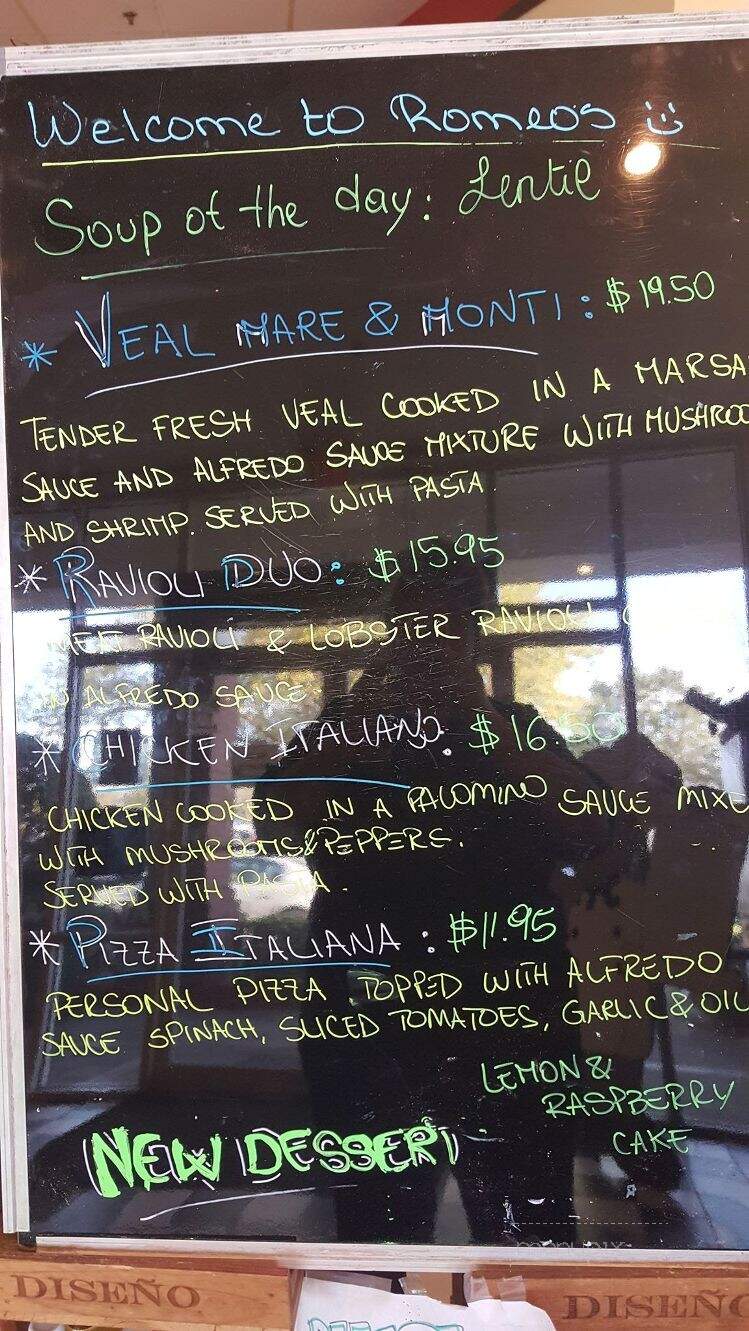 Welcome to Romeos
Soup of the day: Lentil
* VEAL MARE & MONTI: $19.50
TENDER FRESH VEAL COOKED IN A MARSA
SAUCE AND ALFREDO SAUCE MIXTURE WITH MUSHROO
AND SHRIMP. SERVED WITH PASTA
* RAVIOLI DUO: $15.95
MEAT RAVIOLI & LOBSTER RAVIOLI
IN ALFREDO SAUCE
* CHICKEN ITALIANO. $16.50
CHICKEN COOKED IN A PALOMINO SAUCE MIXE
WITH MUSHROOMS & PEPPERS.
SERVED WITH PASTA.
* PIZZA ITALIANA: $11.95
PERSONAL PIZZA TOPPED WITH ALFREDO
SAUCE SPINACH, SLICED TOMATOES, GARLIC & OIL
LEMON &
RASPBERRY
CAKE
NEW DESSERT
DISEÑO DISEÑO